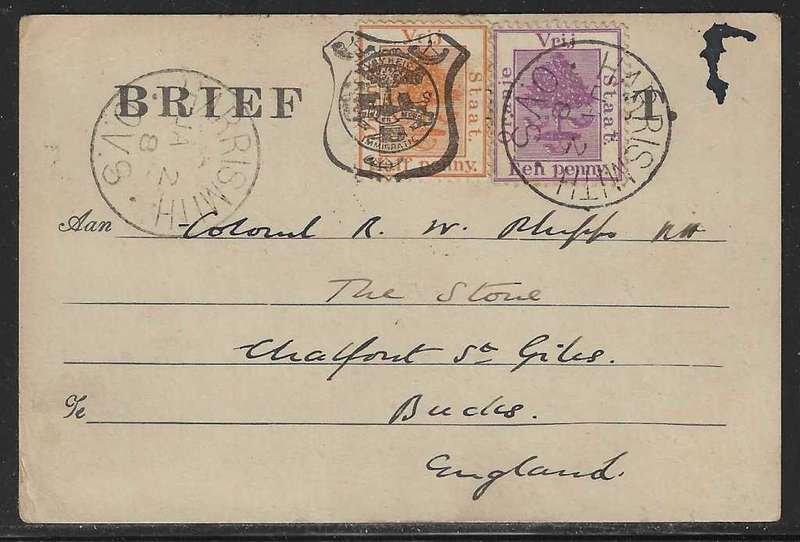 Vrij Vrij
Staat. Oranje Staat.
BRIEF
HARRISMITH
JA 2
O.V.S.
HARRISMITH
O.V.S.
penny. Een penny.
Aan Colonel R. W. Phipps RA
The Stone
Chalfont St Giles.
Te Bucks.
England.